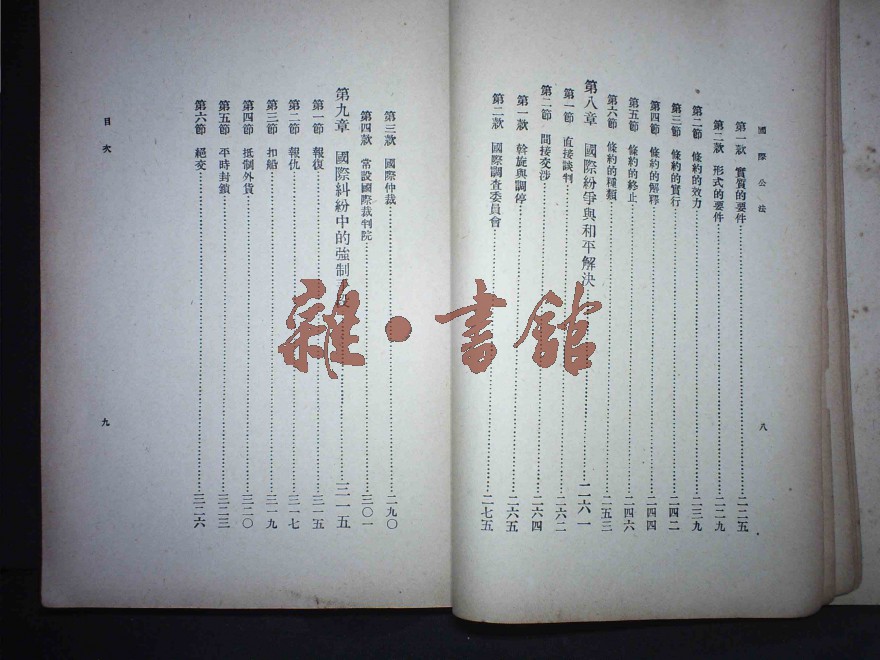 國際公法
第一款 實質的要件 二二五
第二款 形式的要件 二二九
第二節 條約的效力 二三九
第三節 條約的實行 二四二
第四節 條約的解釋 二四四
第五節 條約的終止 二四六
第六節 條約的種類 二五三
第八章 國際紛爭與和平解決 二六一
第一節 直接談判 二六二
第二節 間接交涉 二六四
第一款 斡旋與調停 二六五
第二款 國際調查委員會 二七五
八
第三款 國際仲裁 二九〇
第四款 常設國際裁判院 三〇一
第九章 國際糾紛中的強制手段 三一五
第一節 報復 三一五
第二節 報仇 三一七
第三節 扣船 三一九
第四節 抵制外貨 三二〇
第五節 平時封鎖 三二三
第六節 絕交 三二六
目次
九
雜·書館